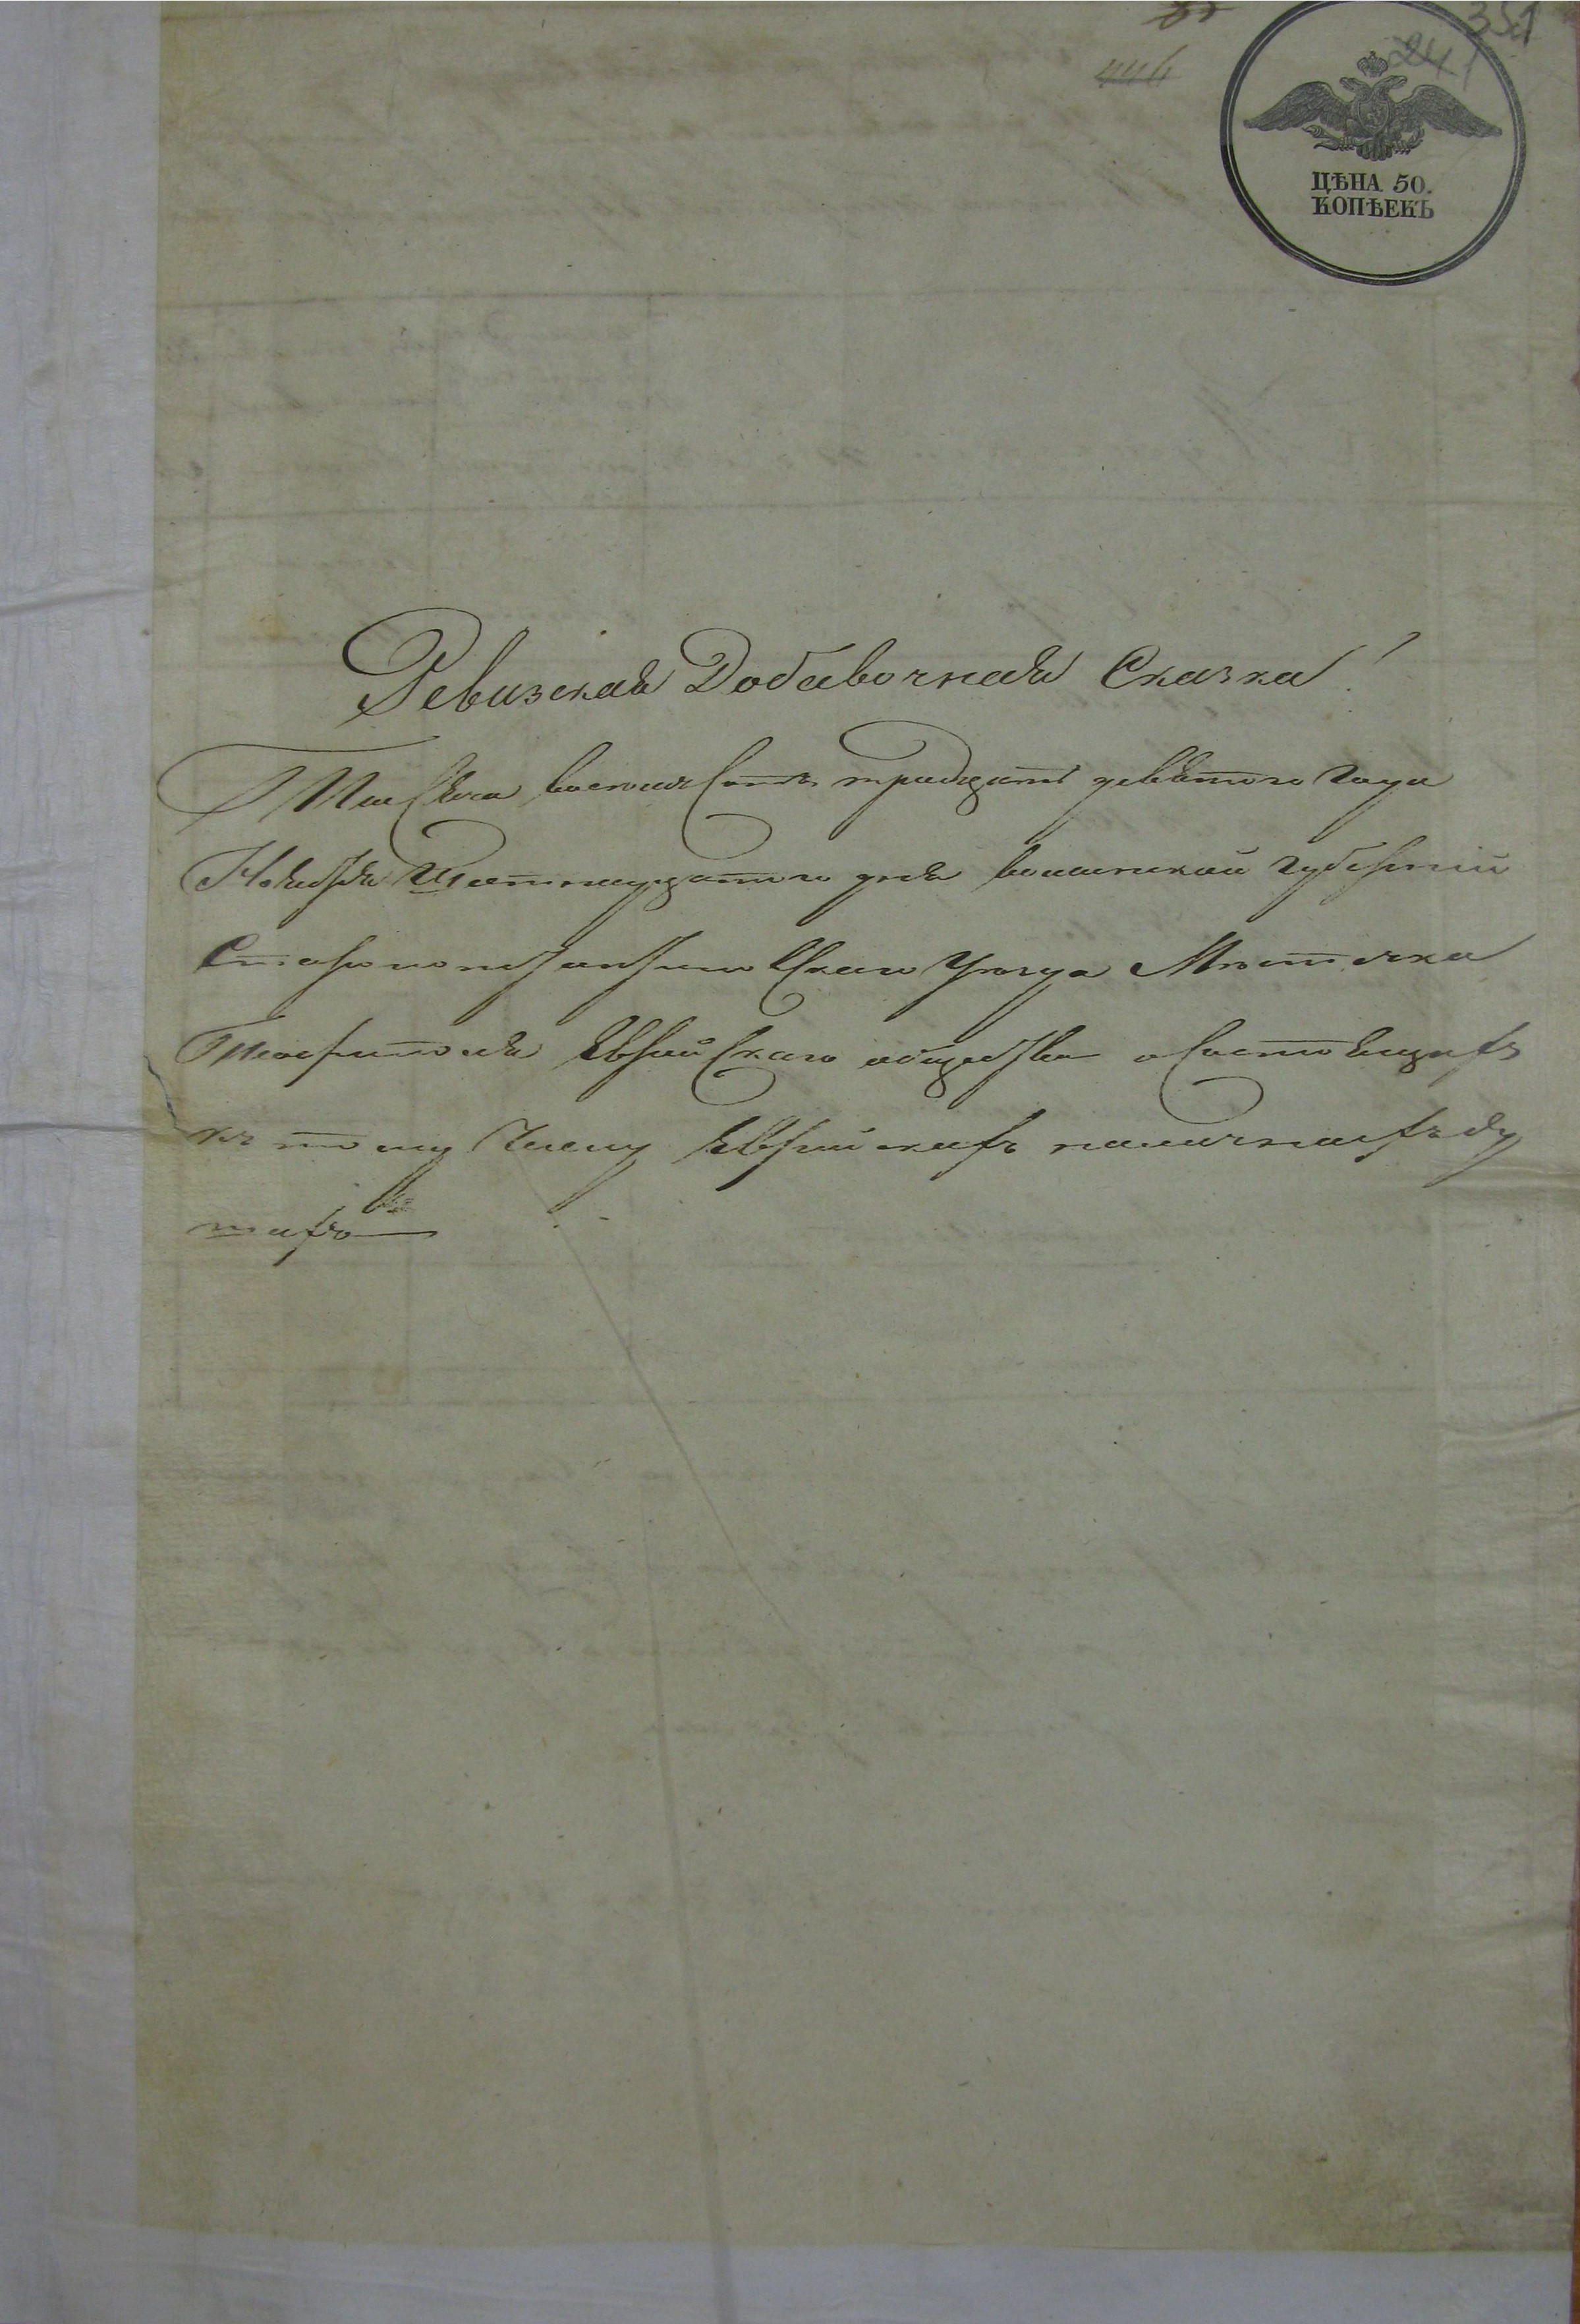 351
241
446
ЦѢНА 50.
КОПѢЕКЪ
Ревизская Добавочная Сказка!
Тысяча восемь сотъ тридцать девятого года
Ноября Шестнадцатого дня волынской губерніи
Староконстантиновского Уезда Мѣстечка
Теофиполя Еврейского общества о Состоящихъ
къ тому Числу Еврейскихъ наличныхъ ду
шахъ